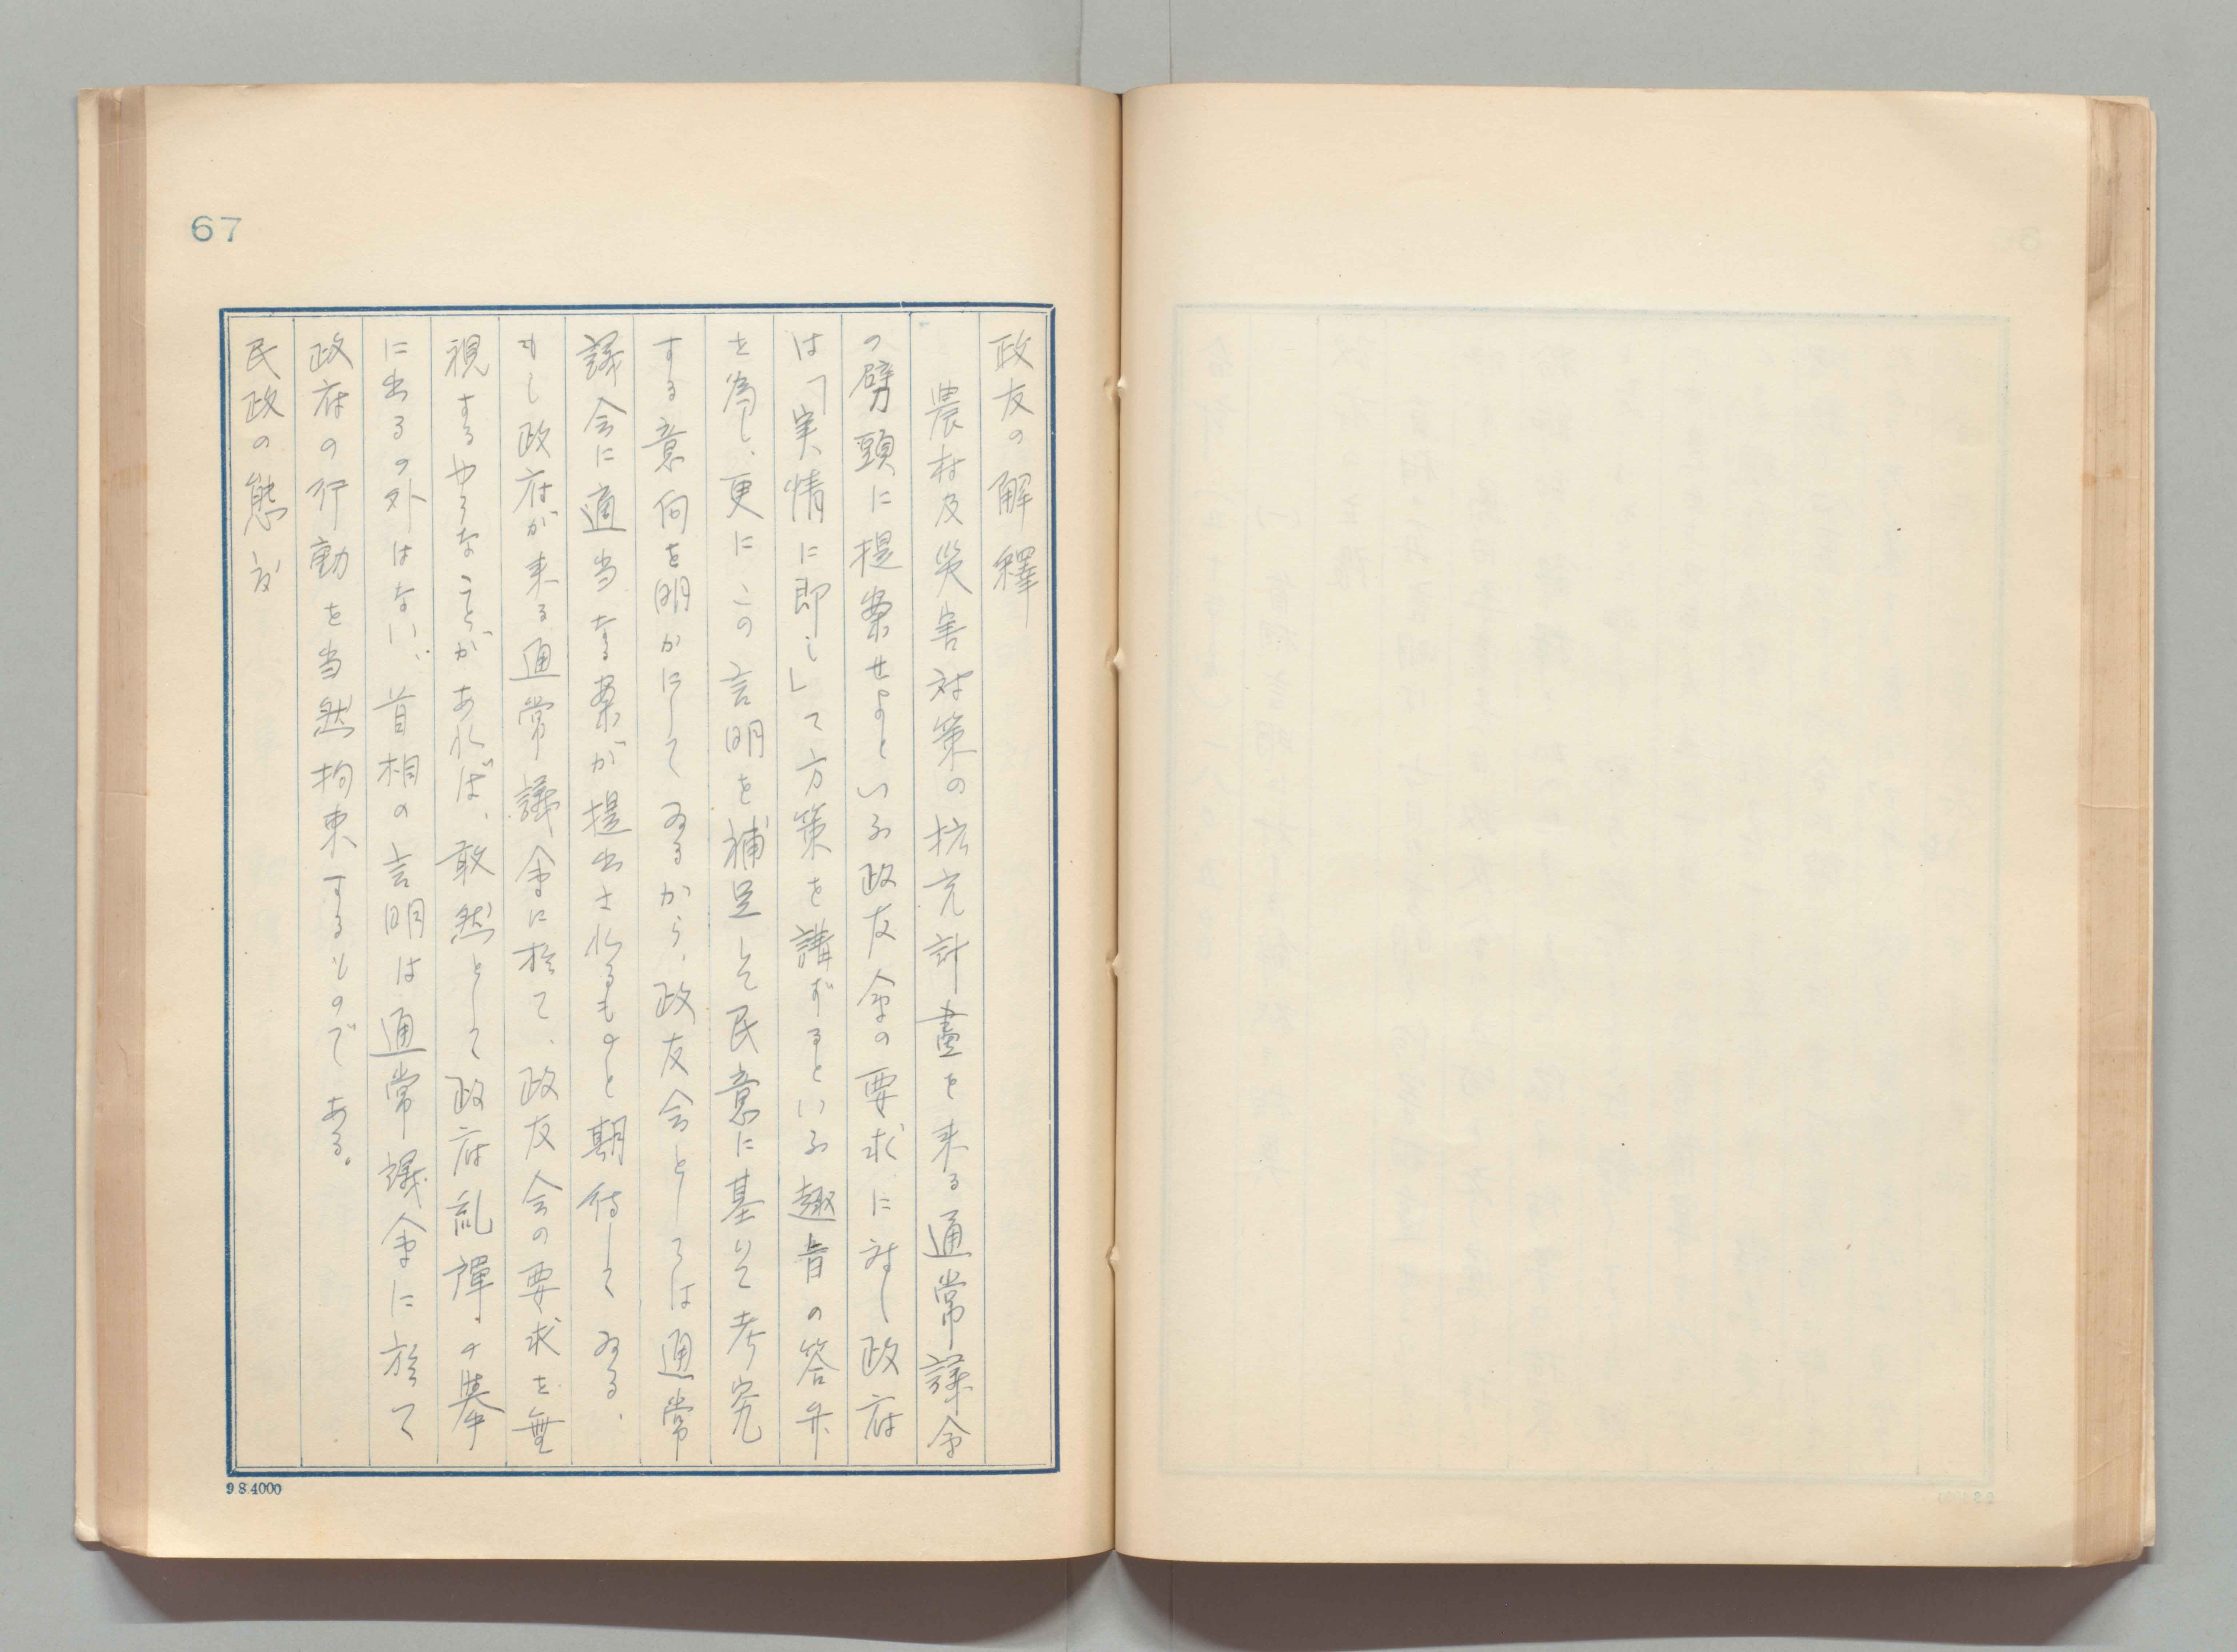 67
政友の解釋
農村及災害対策の拡充計畫を来る通常議会
の劈頭に提案せよといふ政友会の要求に対し政府
は「実情に即し」て方策を講ずるといふ趣旨の答弁
を為し、更にこの言明を補足して民意に基いて考究
する意向を明かにしてゐるから、政友会としては通常
議会に適当なる案が提出されるものと期待してゐる、
もし政府が来る通常議会に於て、政友会の要求を無
視するやうなことがあれば、敢然として政府乱彈の挙
に出るの外はない、首相の言明は通常議会に於て
政府の行動を当然拘束するものである。
民政の態度
9 8.4000